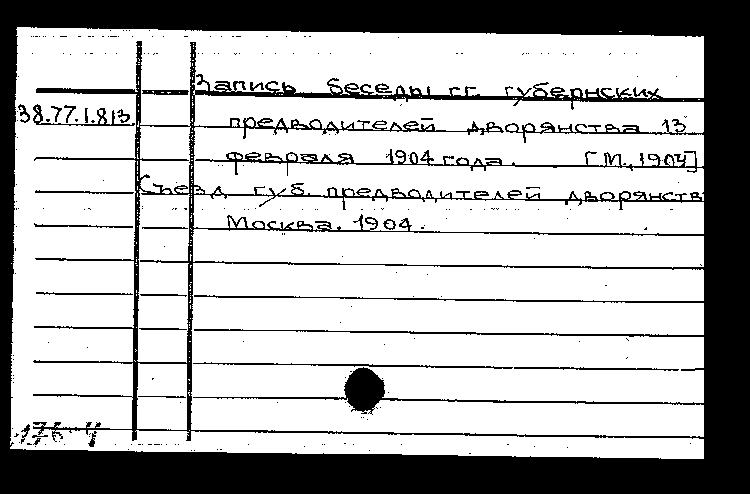 Запись беседы гг. губернских
38.77.1.813. предводителей дворянства 13
февраля 1904 года. [М., 1904]
Съезд губ. предводителей дворянств
Москва. 1904.
176-4